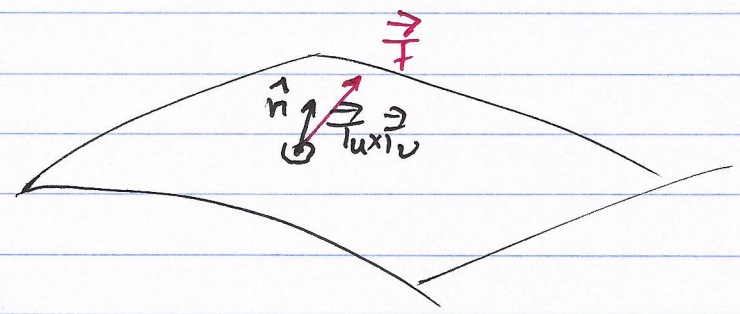 F⃗
n̂
T⃗u×T⃗v